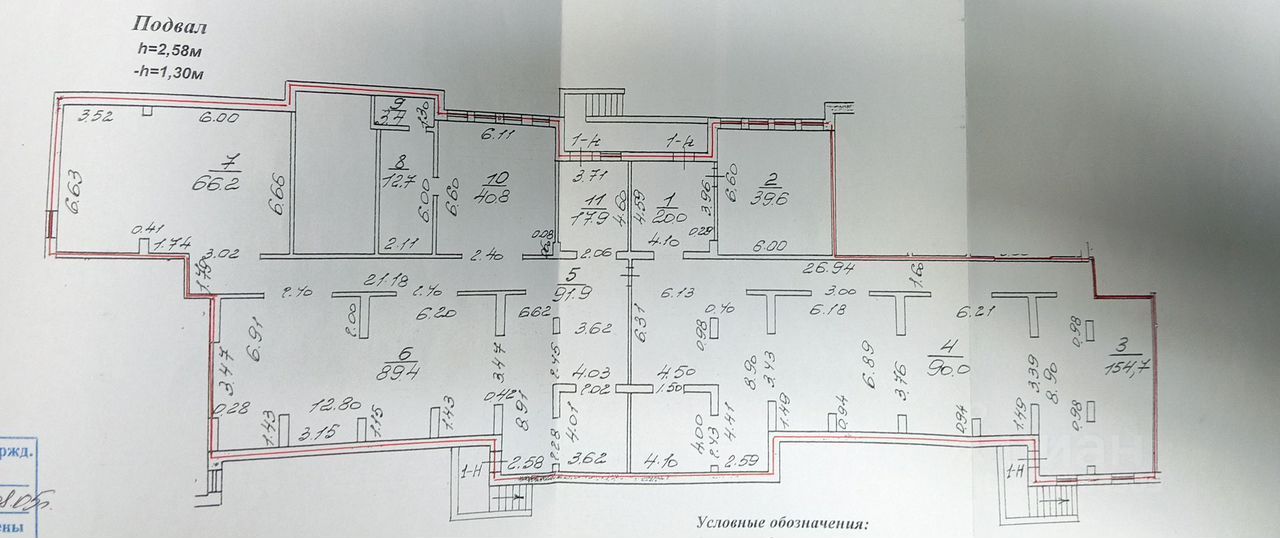 Подвал
h=2,58м
-h=1,30м
3.52
6.00
9
3.4
1.30
6.11
1-н
1-н
7
66.2
8
12.7
10
40.8
3.71
11
17.9
1
20.0
2
39.6
6.63
6.66
6.00
6.60
4.60
4.59
3.96
6.60
0.41
1.74
3.02
2.11
2.40
0.08
2.06
4.10
0.29
6.00
21.18
5
91.9
26.94
1.60
2.40
2.40
6.20
6.62
3.62
6.13
0.40
3.00
6.18
6.21
2.00
6.91
3.47
6
89.4
3.47
2.46
6.31
0.98
8.90
3.43
6.89
3.76
4
90.0
3.39
8.90
0.98
3
154,7
4.03
2.02
4.50
1.50
0.28
1.43
12.80
3.15
1.15
1.43
0.42
8.91
4.01
2.28
4.00
2.43
4.41
1.49
0.94
0.94
1.49
0.98
1-Н
2.58
3.62
4.10
2.59
1-Н
ржд.
ены
Условные обозначения:
циан